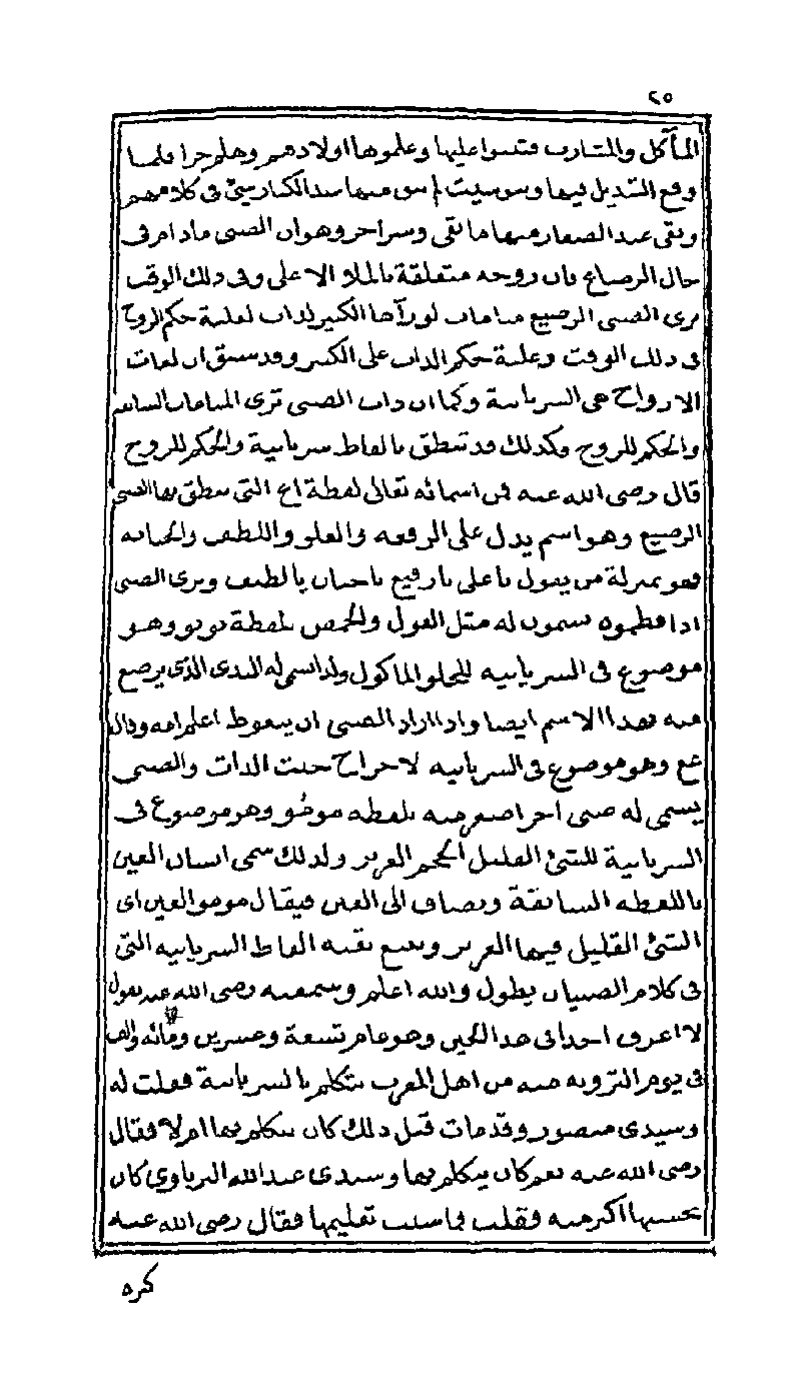 ٢٥
المآكل والمشارب فنشوا عليها وعلموها اولادهم وهلم جرا فلما
وقع التبديل فيها وتنوسيت لم يبق منها عند الكبار شئ في كلامهم
وبقى عند الصغار منها ما بقى وسر اخر وهو ان الصبى مادام فى
حال الرضاع فان روحه متعلقة بالملاء الاعلى وفى ذلك الوقت
يرى الصبى الرضيع منامات لو رآها الكبير لذاب لغلبة حكم الروح
فى ذلك الوقت وغلبة حكم الذات على الكبير وقد سبق ان لغات
الارواح هى السريانية وكما ان ذات الصبى ترى المنامات السابقة
والحكم للروح فكذلك قد تنطق بالفاظ سريانية والحكم للروح
قال رضى الله عنه فمن اسمائه تعالى لفظة اغ التى ينطق بها الصبى
الرضيع وهو اسم يدل على الرفعه والعلو واللطف والحنانه
فهو بمنزلة من يقول يا على يا رفيع يا حنان يا لطيف ويرى الصبى
اذا فطموه يسمون له مثل الفول والحمص بلفظة بوبو وهو
موضوع فى السريانيه للحلو الماكول ولذا سمى له الثدى الذى يرضع
منه بهذا الاسم ايضا واذا اراد الصبى ان يتغوط اعلم امه وقال
عع وهو موضوع فى السريانيه لاخراج خبث الذات والصبى
يسمى له صبى اخر اصغر منه بلفظه مومو وهو موضوع فى
السريانية للشئ القليل الحجم العزيز ولذلك سمى انسان العين
باللفظه السابقة ويضاف الى العين فيقال مومو العين اى
الشئ القليل فيها العزيز وتتبع بقيه الفاظ السريانيه التى
فى كلام الصبيان يطول والله اعلم وسمعته رضى الله عنه يقول
لا اعرف احدا فى هذا الحين وهو عام تسعة وعشرين ومائه والف
فى يوم الترويه منه من اهل المغرب يتكلم بالسريانية فقلت له
وسيدى منصور وقد مات قبل ذلك كان يتكلم بها ام لا فقال
رضى الله عنه نعم كان يتكلم بها وسيدى عبد الله البرناوى كان
يحسنها اكثر منه فقلت فما سبب تعليمها فقال رضى الله عنه
كثره